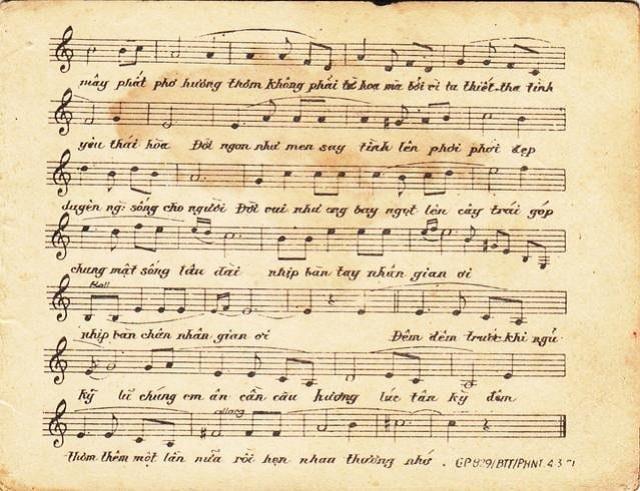 mây phất phơ hương thơm không phải từ hoa mà bởi vì ta thiết tha tình
yêu thái hòa Đời ngon như men say tình lên phơi phới đẹp
duyên người sống cho người Đời vui như ong bay ngọt lên cây trái góp
chung mật sống lâu dài nhịp bàn tay nhân gian ơi
Rall
nhịp bàn chân nhân gian ơi Đêm đêm trước khi ngủ
kỹ lữ chúng em ân cần câu hương lúc tân kỳ đêm
allarg
thơm thêm một lần nữa rồi hẹn nhau thương nhớ .